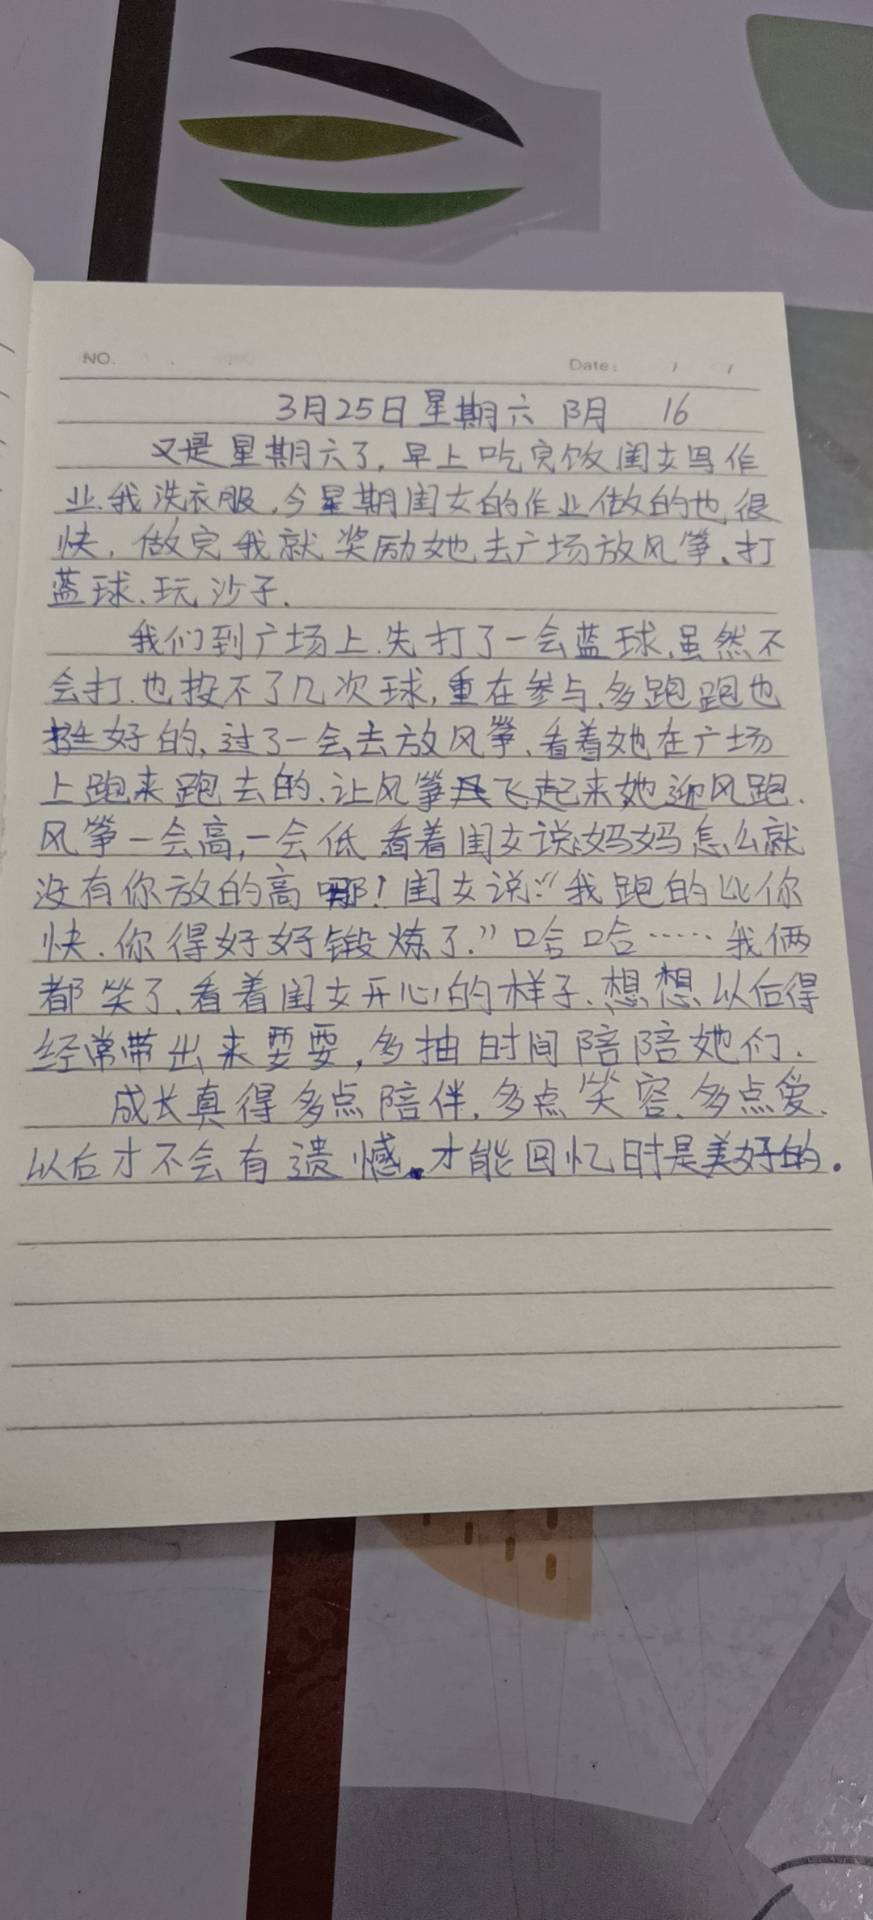 NO.
Date: / /
3月25日星期六 阴 16
又是星期六了,早上吃完饭闺女写作
业.我洗衣服,今星期闺女的作业做的也很
快,做完我就奖励她去广场放风筝、打
蓝球、玩沙子.
我们到广场上.先打了一会蓝球,虽然不
会打.也按不了几次球,重在参与.多跑跑也
挺好的,过了一会去放风筝.看着她在广场
上跑来跑去的.让风筝飞起来她迎风跑.
风筝一会高,一会低 看着闺女说:妈妈怎么就
没有你放的高哪!闺女说:“我跑的比你
快.你得好好锻炼了.”哈哈……我俩
都笑了.看着闺女开心的样子.想想以后得
经常带出来耍耍,多抽时间陪陪她们.
成长真得多点陪伴.多点笑容.多点爱.
以后才不会有遗憾.才能回忆时是美好的.